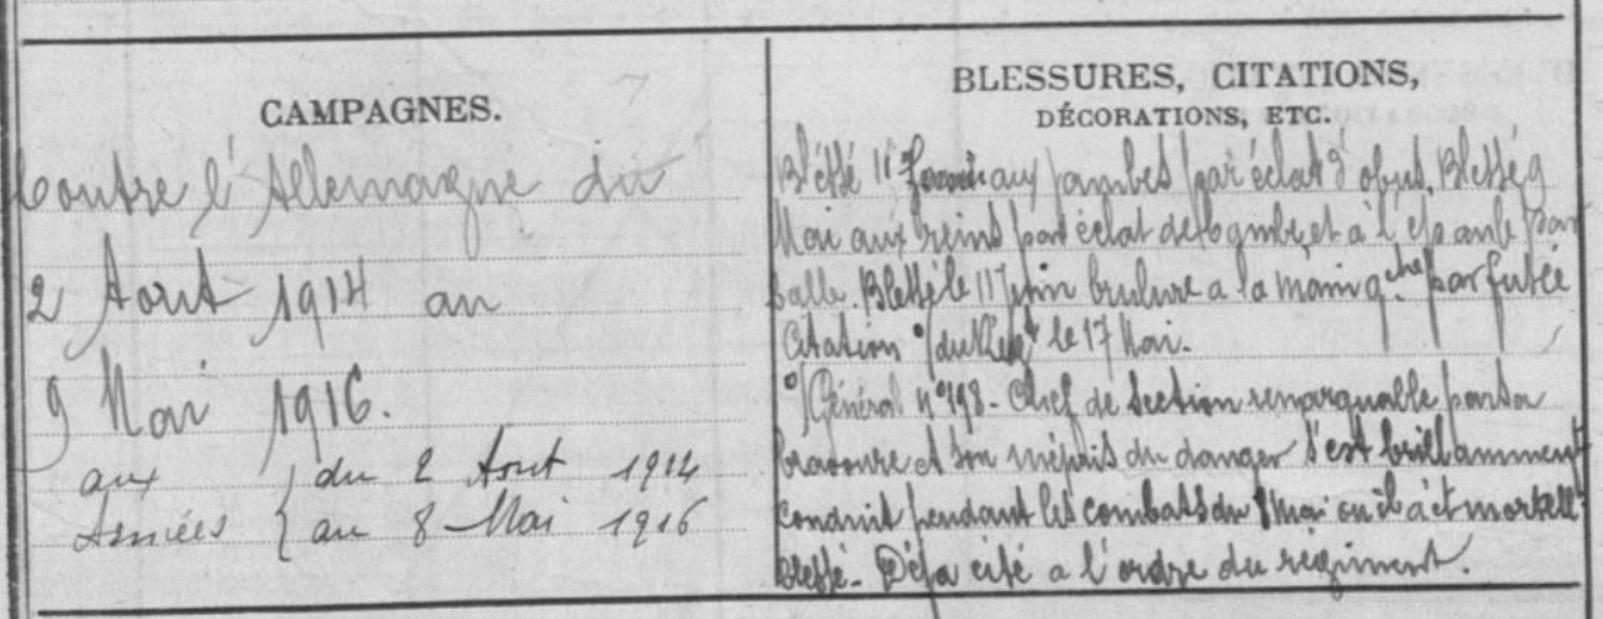 CAMPAGNES.
Contre l'Allemagne du
2 Aout 1914 au
9 Mai 1916.
aux du 2 Aout 1914
Armées au 8 Mai 1916
BLESSURES, CITATIONS,
DÉCORATIONS, ETC.
Bléssé 11 aux jambes par éclat d'obus. Blessé 9
Mai aux reins par éclat de bombe et à l'épaule par
balle. Blessé le 11 Juin brulure a la main gche par fusée
Citation le 17 Mai.
Général n° 198 - Chef de Section remarquable par sa
bravoure et son mépris du danger s'est brillamment
conduit pendant les combats du Mai où il à ét mortell
blessé - Déja cité a l'ordre du régiment.